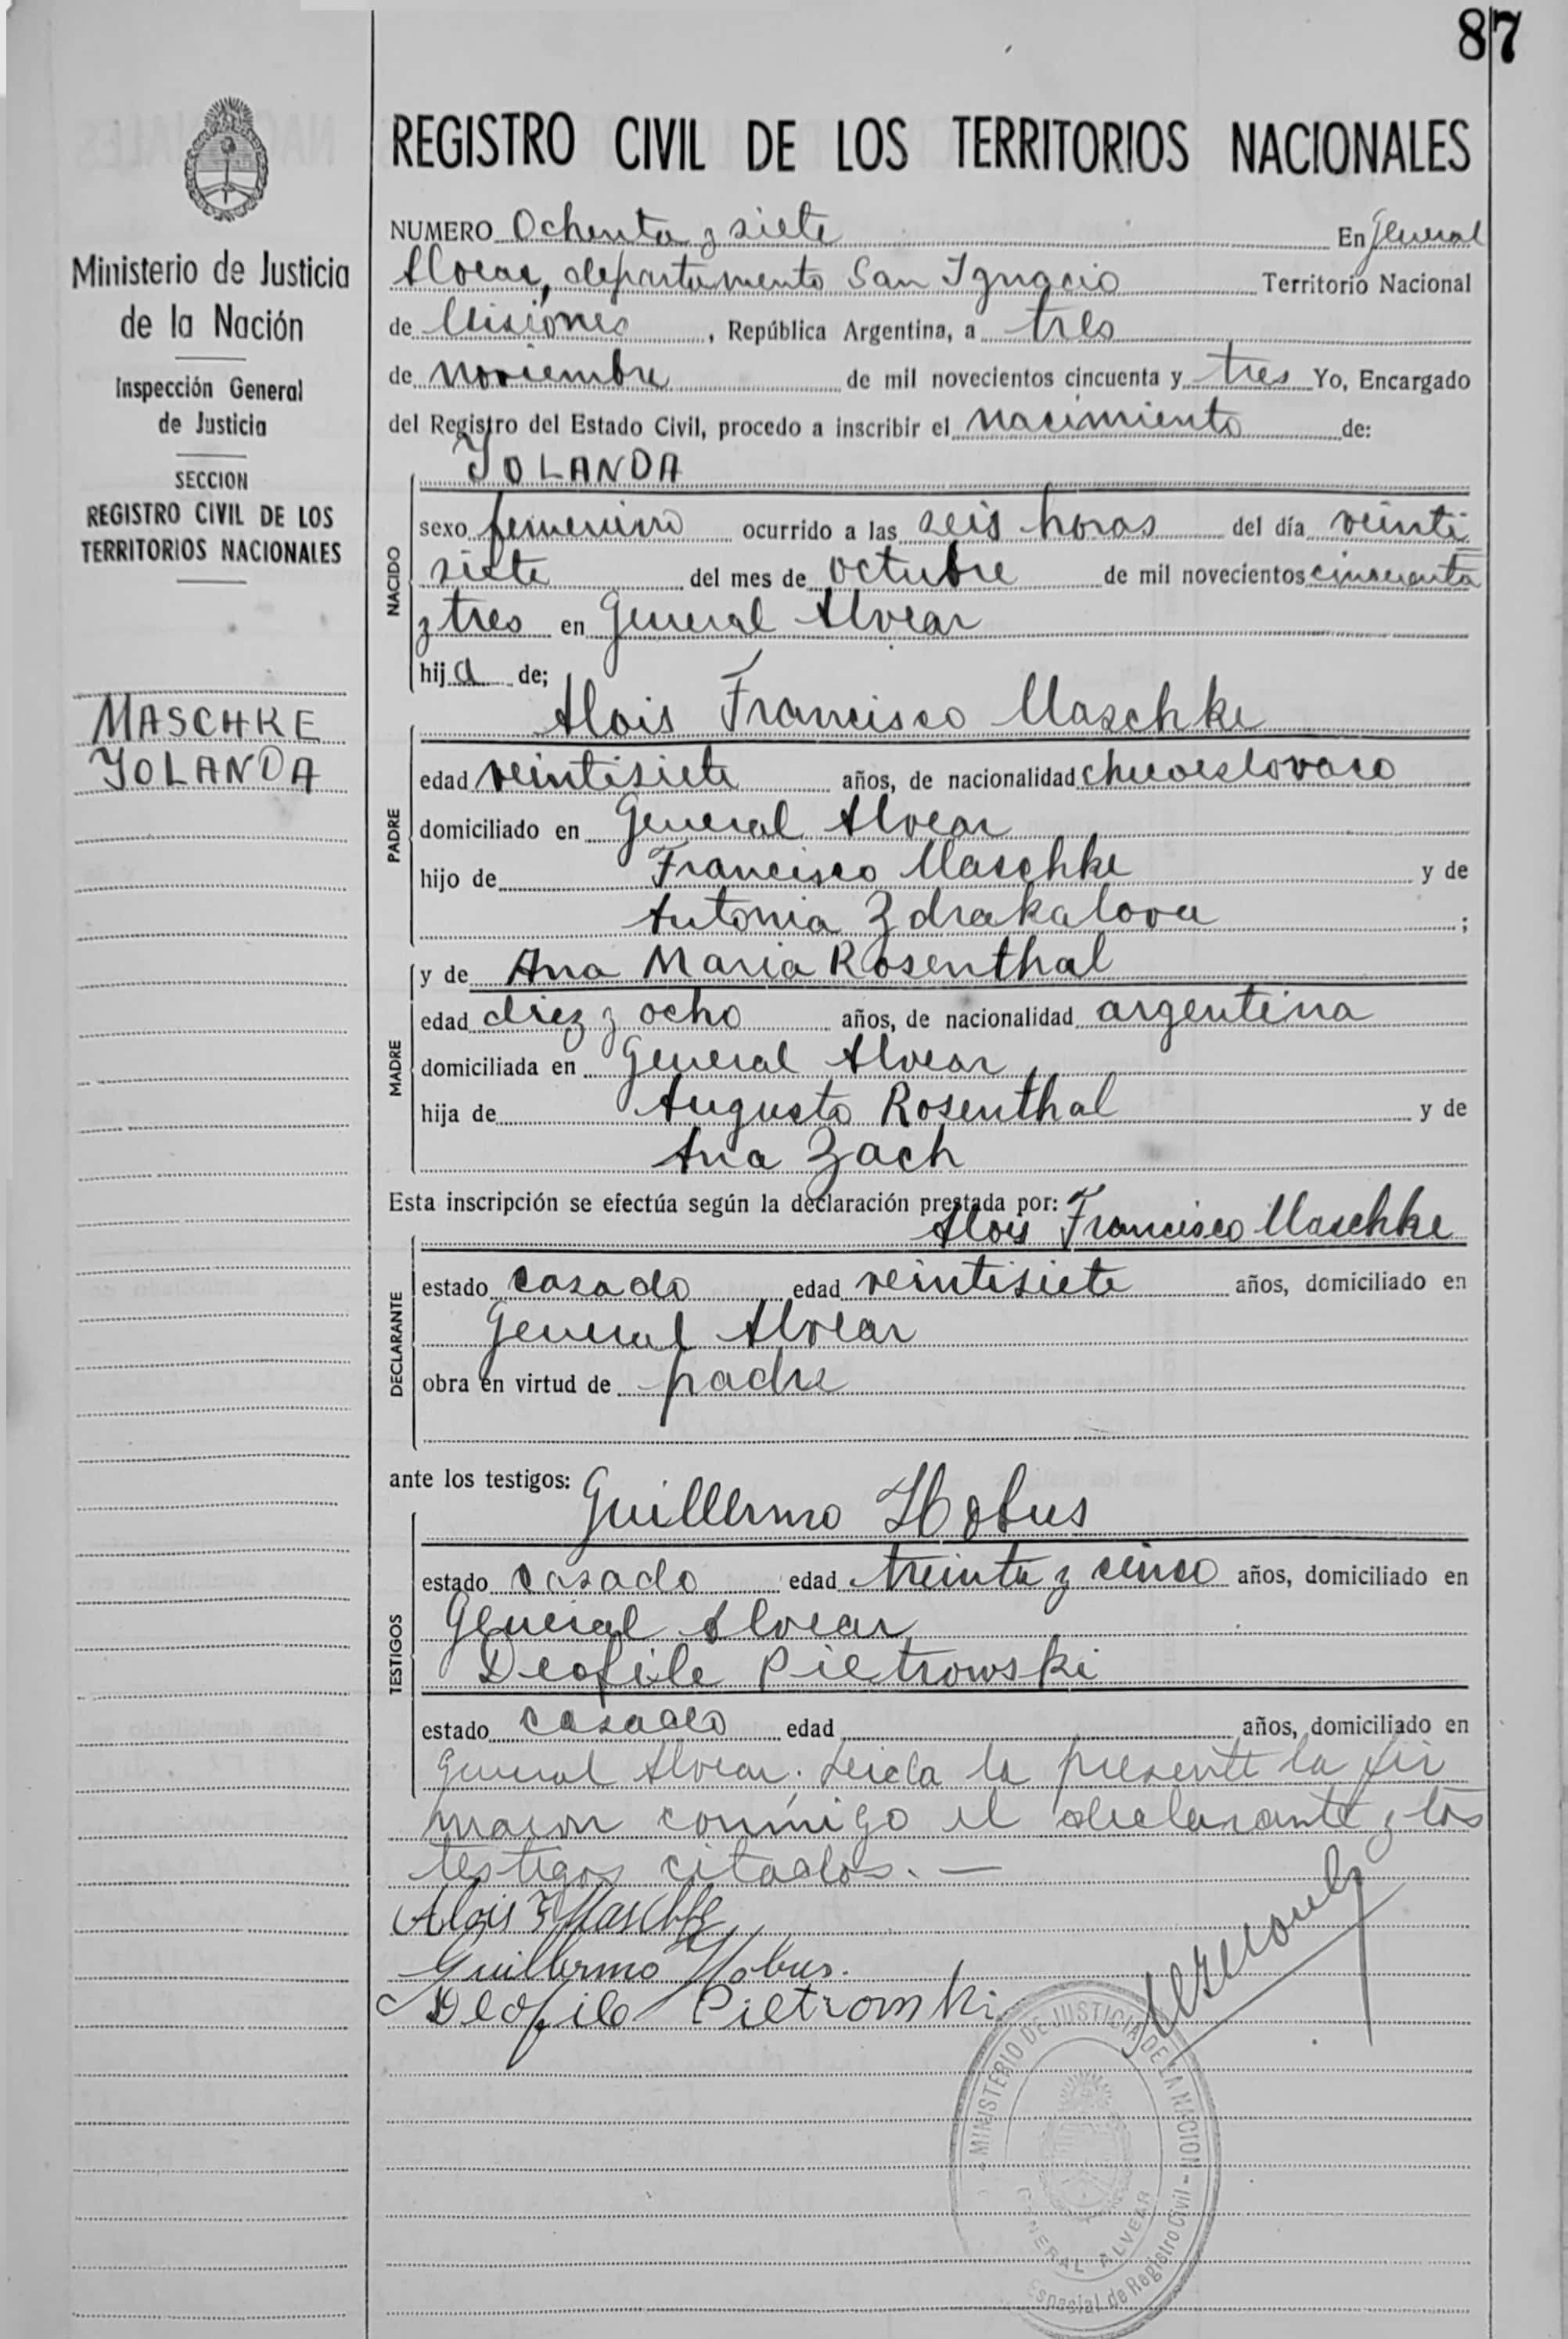 87
REGISTRO CIVIL DE LOS TERRITORIOS NACIONALES
Ministerio de Justicia
de la Nación
Inspección General
de Justicia
SECCION
REGISTRO CIVIL DE LOS
TERRITORIOS NACIONALES
MASCHKE
YOLANDA
NUMERO Ochenta y siete En General
Alvear, departamento San Ignacio Territorio Nacional
de Misiones, República Argentina, a tres
de noviembre de mil novecientos cincuenta y tres Yo, Encargado
del Registro del Estado Civil, procedo a inscribir el nacimiento de:
YOLANDA
NACIDO
sexo femenino ocurrido a las seis horas del día veinti
siete del mes de octubre de mil novecientos cincuenta
y tres en General Alvear
hija de;
Alois Francisco Maschke
PADRE
edad veintisiete años, de nacionalidad checoeslovaco
domiciliado en General Alvear
hijo de Francisco Maschke y de
Antonia Zdrakalova ;
y de Ana Maria Rosenthal
MADRE
edad diez y ocho años, de nacionalidad argentina
domiciliada en General Alvear
hija de Augusto Rosenthal y de
Ana Zach
Esta inscripción se efectúa según la declaración prestada por:
Alois Francisco Maschke
DECLARANTE
estado casado edad veintisiete años, domiciliado en
General Alvear
obra en virtud de padre
ante los testigos:
Guillermo Hobus
TESTIGOS
estado casado edad treinta y cinco años, domiciliado en
General Alvear
Deofile Pietrowski
estado casado edad años, domiciliado en
General Alvear. Leida la presente la fir
maron conmigo el declarante y los
testigos citados. —
Alois F Maschke
Guillermo Hobus.
Deofilo Pietrowski
MINISTERIO DE JUSTICIA DE LA NACION
GENERAL ALVEAR
Especial de Registro Civil